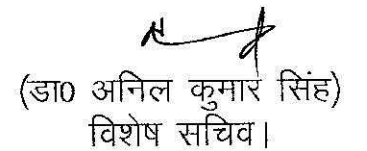 (डा0 अनिल कुमार सिंह)
विशेष सचिव।